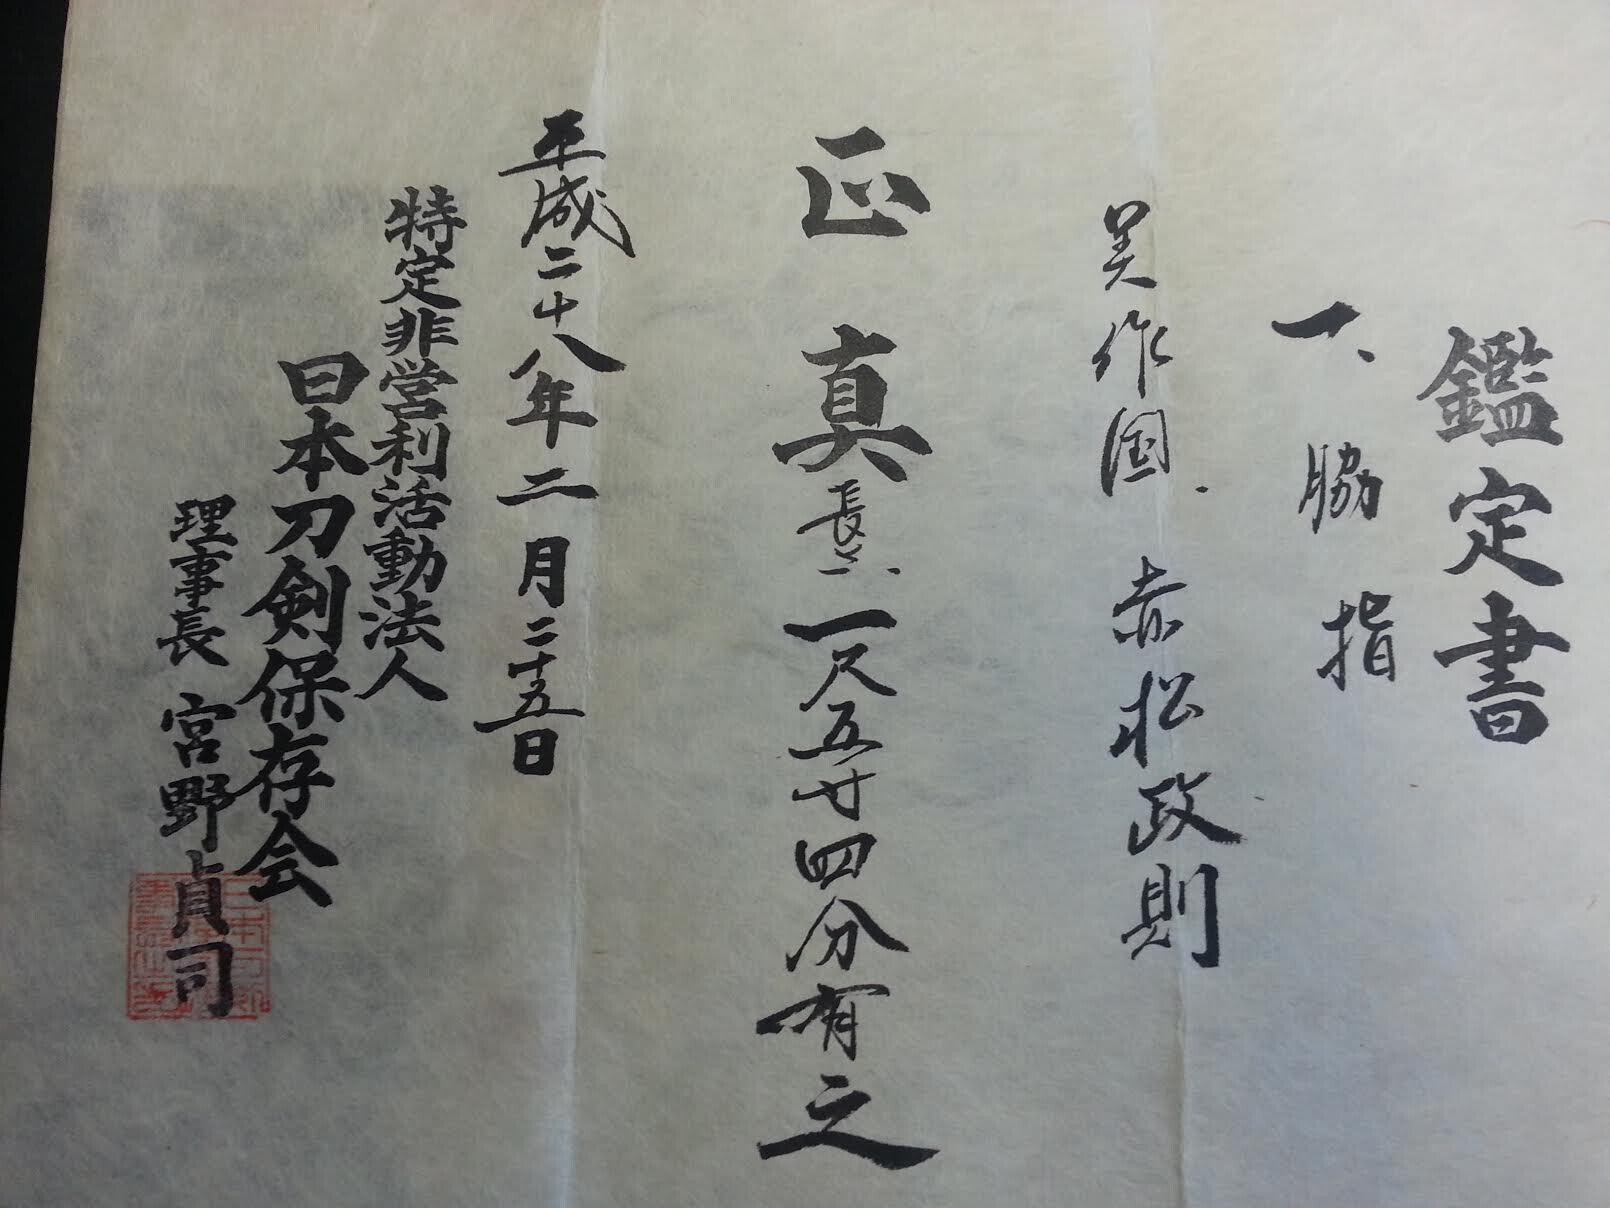 鑑定書
一、脇指
美作国. 赤松政則
正真 長サ 一尺五寸四分有之
平成二十八年二月二十五日
特定非営利活動法人
日本刀剣保存会
理事長 宮野貞司